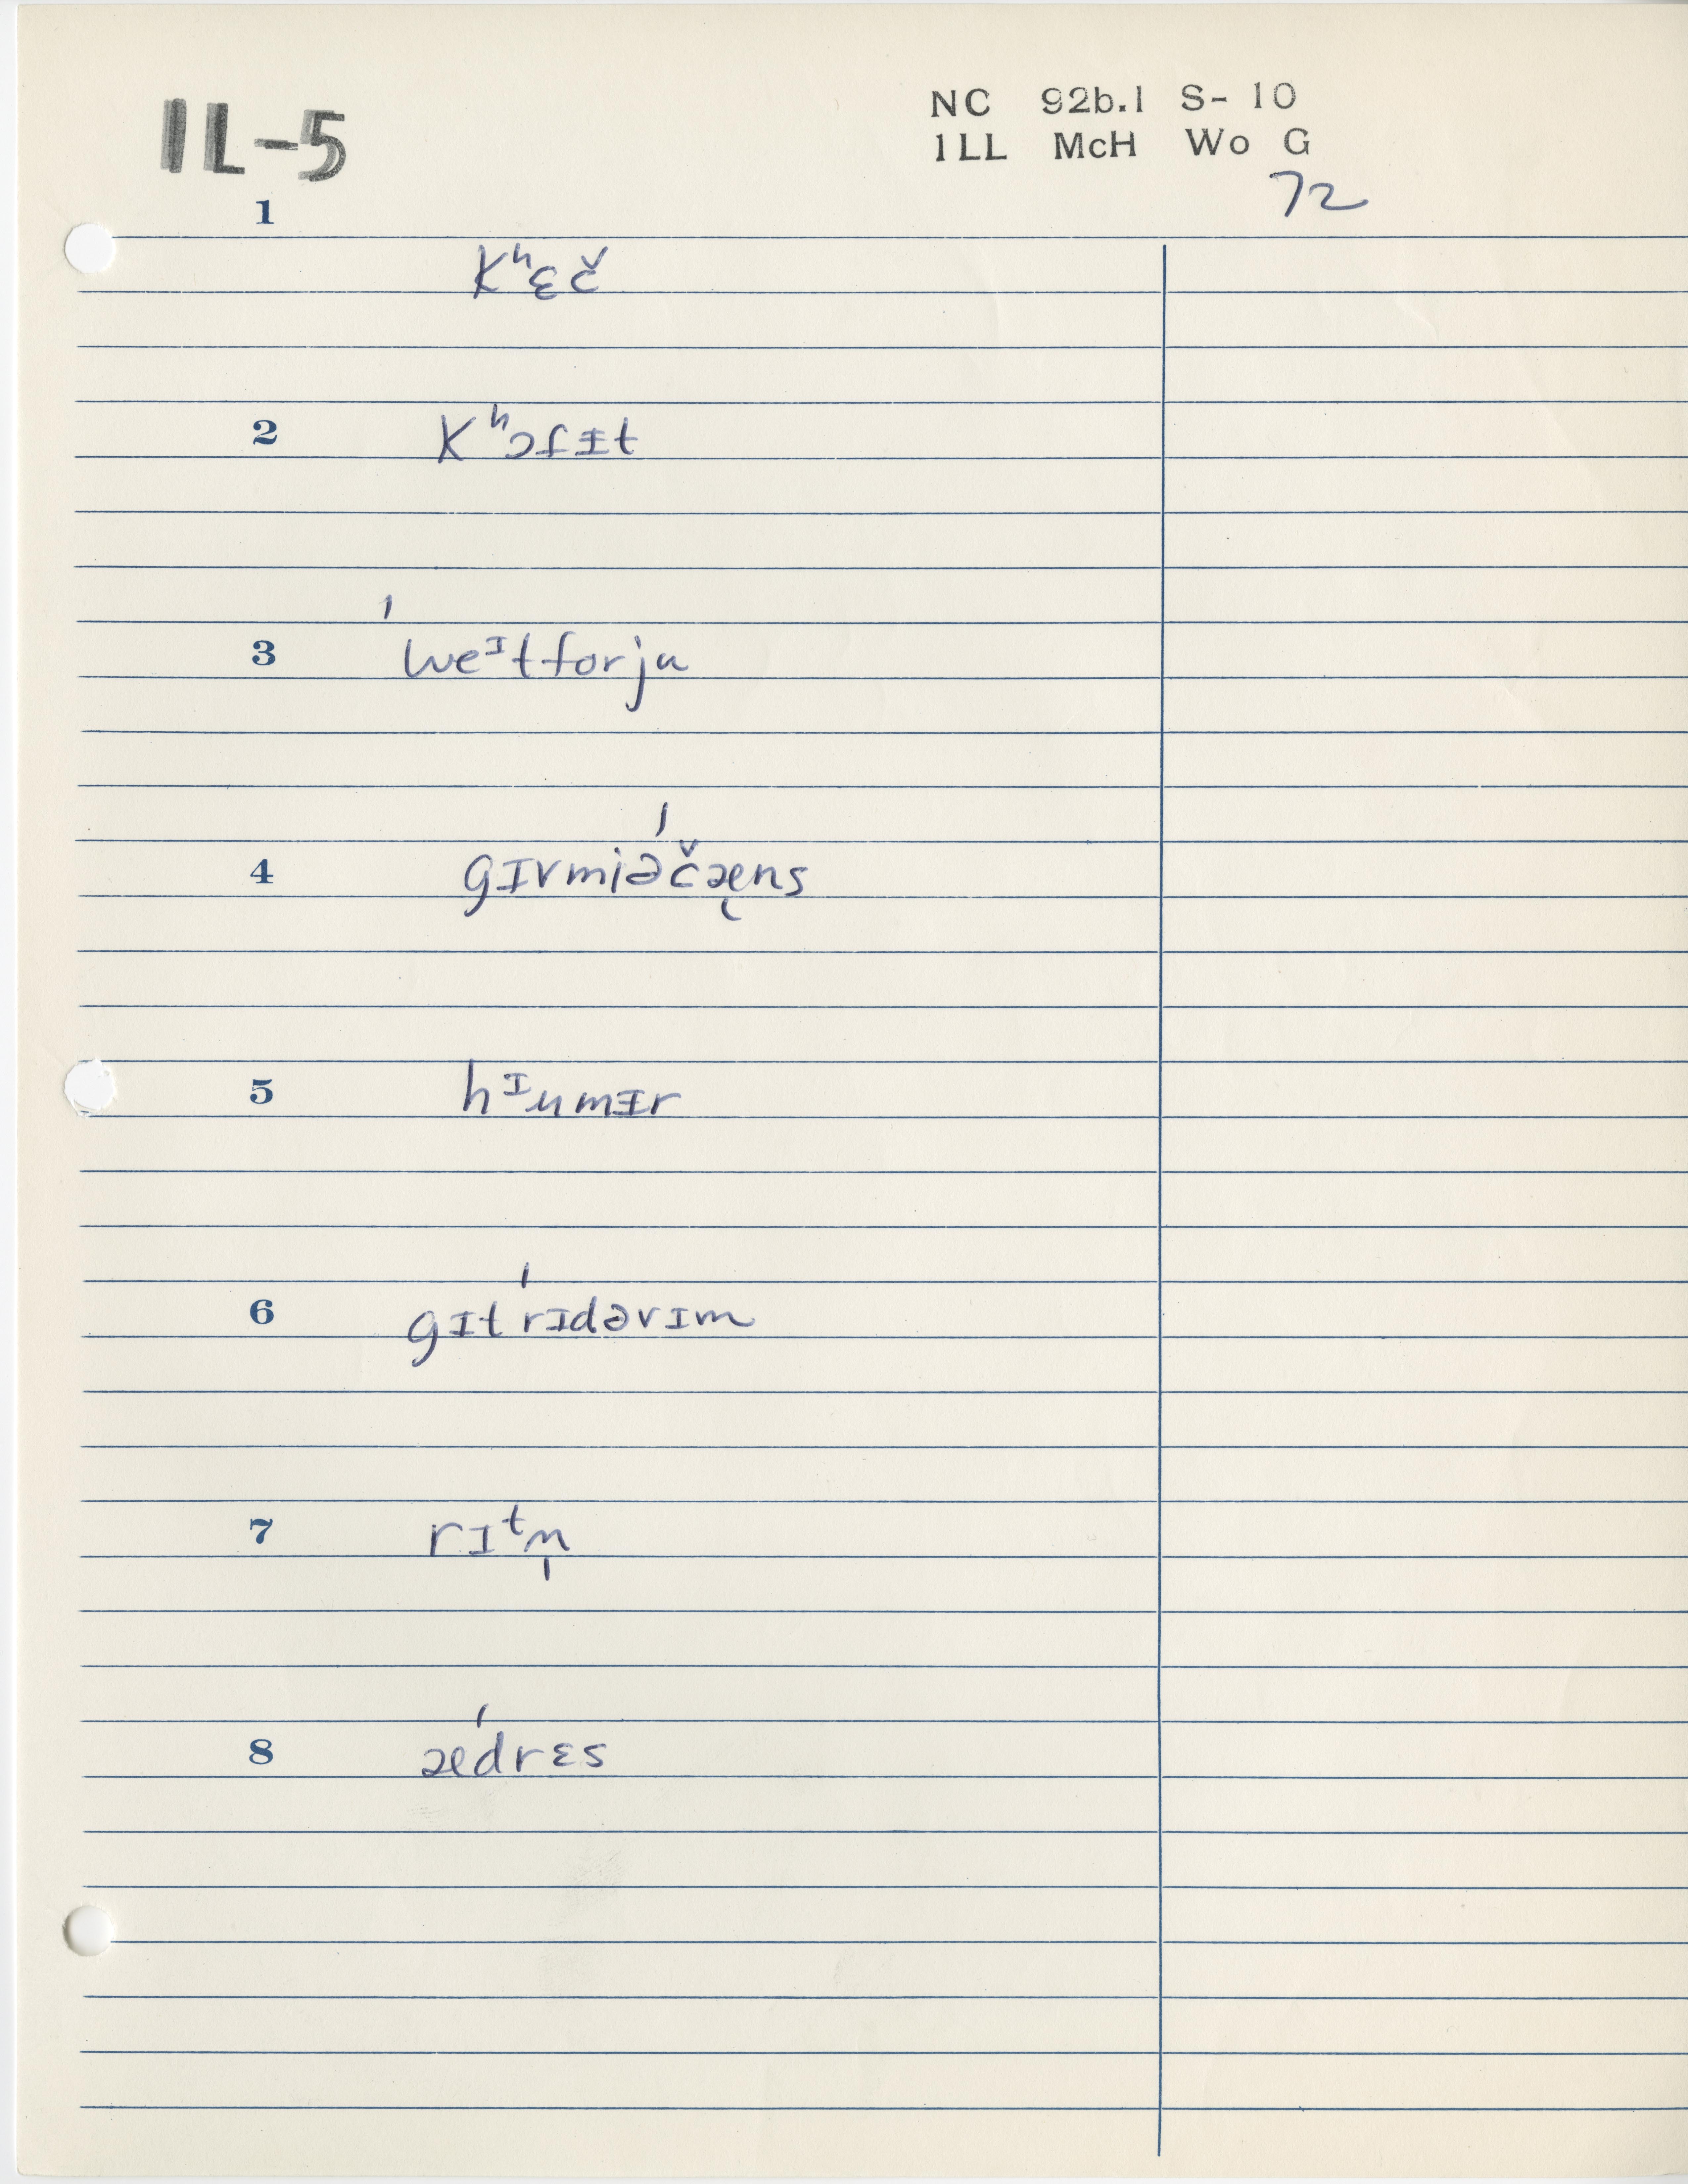 IL-5
NC 92b.1 S- 10
1LL McH Wo G
72
1 Kʰɛč
2 Kʰɔfɨt
3 ˈweᶦtforju
4 gɪvmiəˈčæ̨ns
5 hᶦumɨr
6 gɪtˈrɪdəvɪm
7 rɪᵗn̩
8 ˈædrɛs